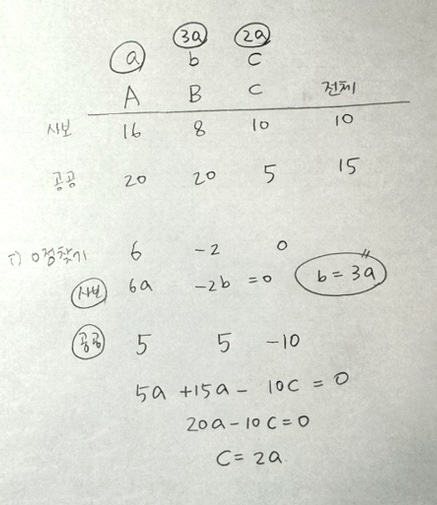 a 3a 2a
b c
A B C 전체
사보 16 8 10 10
공공 20 20 5 15
i) 0점찾기 6 -2 0
사보 6a -2b = 0 b = 3a
공공 5 5 -10
5a + 15a - 10c = 0
20a - 10c = 0
c = 2a